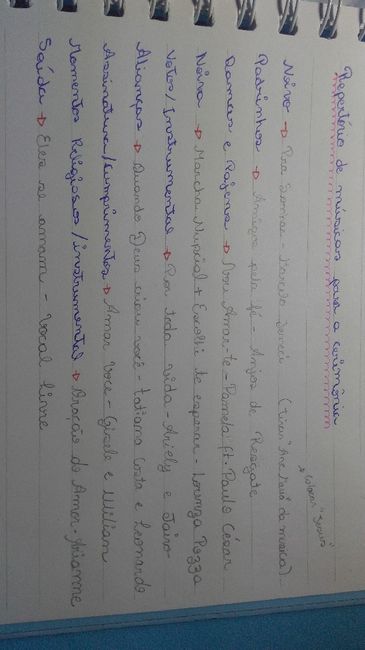 Repertório de músicas para a cerimônia
Noivo → Pra Somar - Marcelo (tirar da música).
↳ colocar
Padrinhos → Amigos pela fé - Anjos de Resgate
Damas e Pajens → Vou Amar-te - Pamela ft. Paulo César
Noiva → Marcha Nupcial + Escolhi te esperar - Lorenza Pozza
Votos/Instrumental → Por toda vida - Ariely e
Alianças → Quando Deus criou você - Tatiana Costa e Leonardo
Assinatura/cumprimentos → Amar Você - Gisele e Willian
Momentos Religiosos/instrumental → Oração do Amor Arianne
Saída → Eles se amam - Vocal Livre